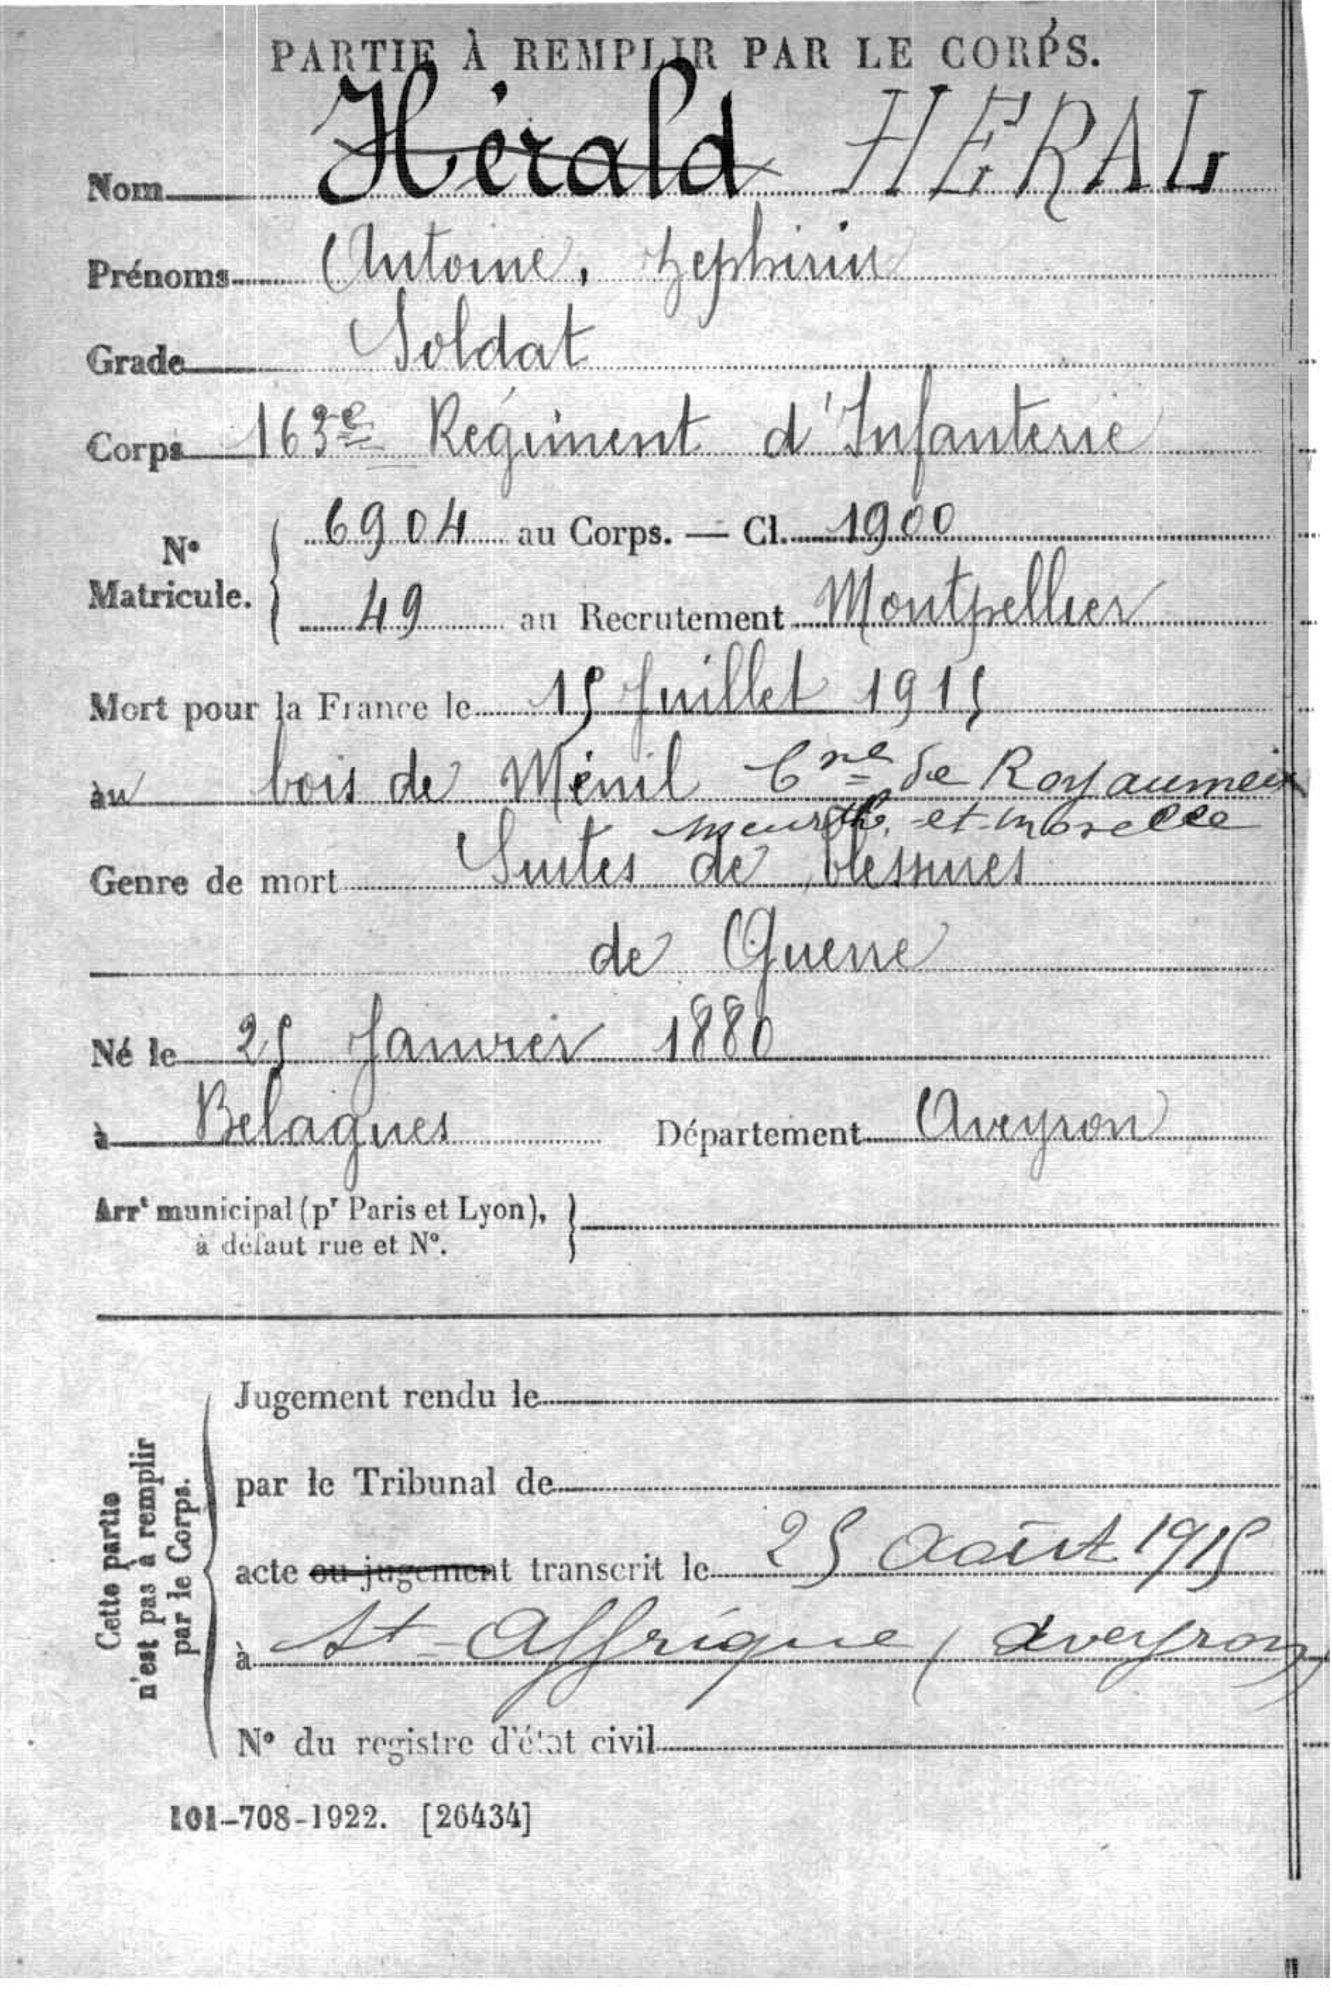 PARTIE À REMPLIR PAR LE CORPS.
Nom Hérald HÉRAL
Prénoms Antoine, Zephirin
Grade Soldat
Corps 163e Régiment d'Infanterie
N° Matricule. 6904 au Corps. — Cl. 1900
49 au Recrutement Montpellier
Mort pour la France le 15 Juillet 1915
au bois de Ménil Cne de Royaumeix
Meurthe-et-Moselle
Genre de mort Suites de blessures
de Guerre
Né le 25 Janvier 1880
à Belagues Département Aveyron
Arrt municipal (pr Paris et Lyon),
à défaut rue et N°.
Cette partie
n'est pas à remplir
par le Corps.
Jugement rendu le
par le Tribunal de
acte ou jugement transcrit le 25 Août 1915
à St-Affrique (Aveyron)
N° du registre d'état civil
101-708-1922. [26434]